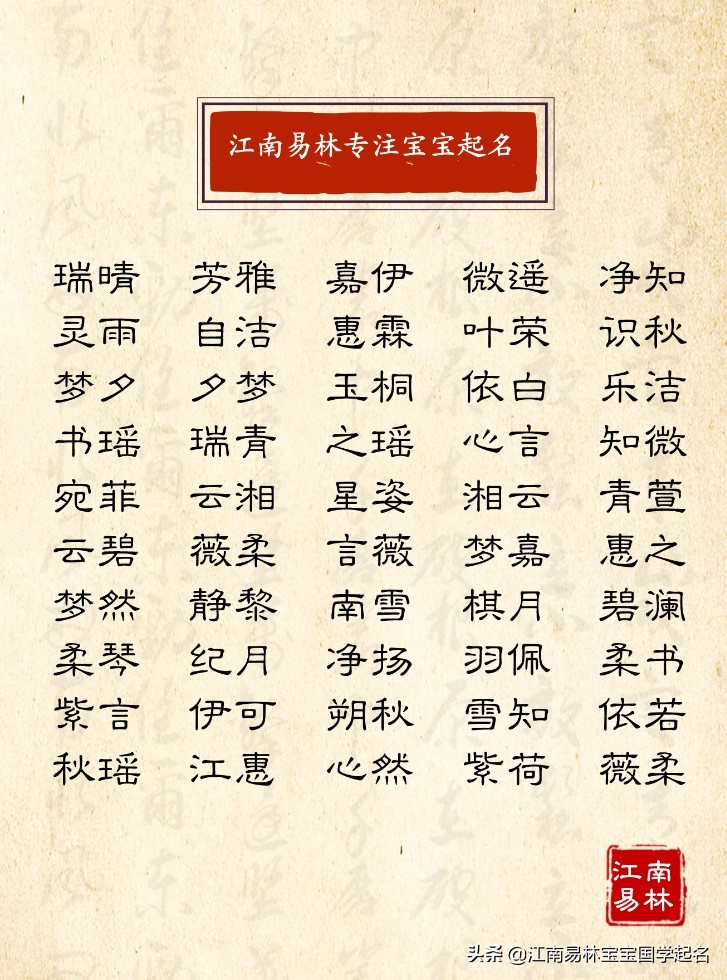 江南易林专注宝宝起名
瑞晴 芳雅 嘉伊 微遥 净知
灵雨 自洁 惠霖 叶荣 识秋
梦夕 夕梦 玉桐 依白 乐洁
书瑶 瑞青 之瑶 心言 知微
宛菲 云湘 星姿 湘云 青萱
云碧 薇柔 言薇 梦嘉 惠之
梦然 静黎 南雪 棋月 碧澜
柔琴 纪月 净扬 羽佩 柔书
紫言 伊可 朔秋 雪知 依若
秋瑶 江惠 心然 紫荷 薇柔
江南
易林
头条 @江南易林宝宝国学起名